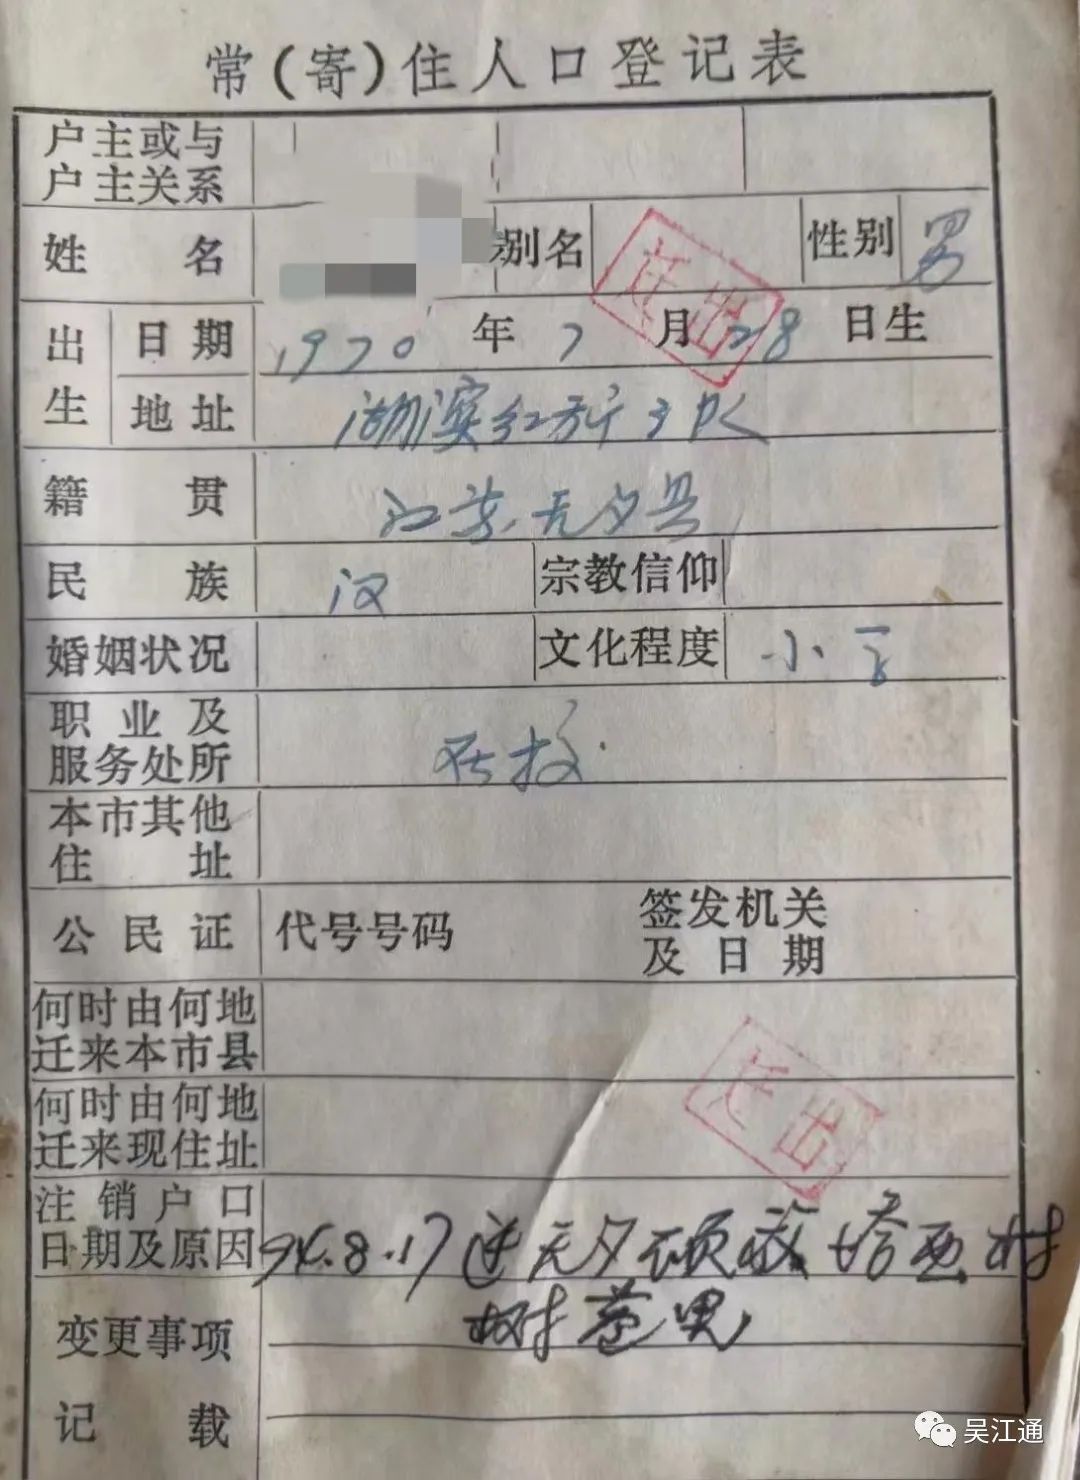 常(寄)住人口登记表
户主或与
户主关系
姓名 别名 性别 男
迁出
出生 日期 1970 年 7 月 28 日生
地址 湖滨红
籍贯 江苏无夕县
民族 汉 宗教信仰
婚姻状况 文化程度 小
职业及
服务处所
本市其他
住址
公民证 代号号码 签发机关
及日期
何时由何地
迁来本市县
何时由何地
迁来现住址
迁出
注销户口
日期及原因 8.17 迁无夕 塔西村
变更事项
记载
吴江通